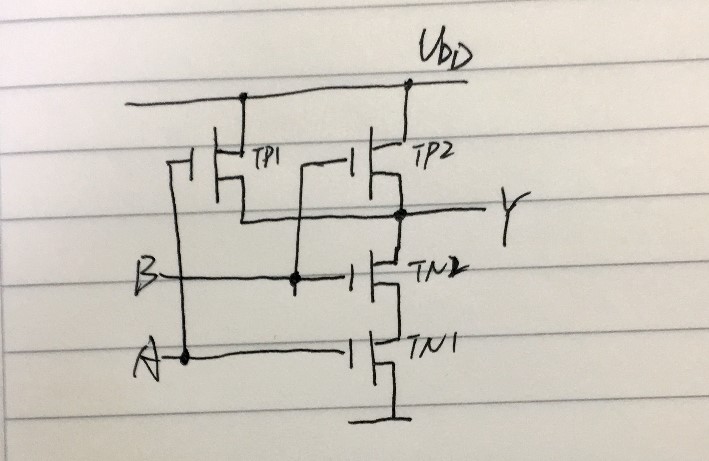 UDD
TP1 TP2
Y
B TN2
A TN1